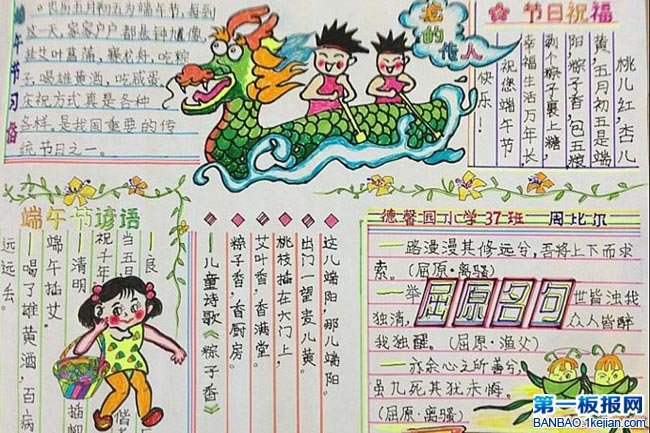 端午节习俗
农历五月初五为端午节,每到
这一天,家家户户都悬钟馗像、
挂艾叶菖蒲、赛龙舟、吃粽
子、喝雄黄酒、吃咸蛋
庆祝方式真是各种
各样。是我国重要的传
统节日之一。
龙的传人
节日祝福
桃儿红,杏儿
黄,五月初五是端
阳,粽子香,包五粮
剥个粽子裹上糖,
幸福生活万年长
祝您端午节
快乐!
端午节谚语
一良
当五日
祝千年
—清明
端午插艾
—喝了雄黄酒,百病
远远丢。
这儿端阳,那儿端阳。
出门一望麦儿黄。
桃枝插在大门上,
艾叶香,香满堂。
粽子香,香厨房。
—儿童诗歌《粽子香》
德馨园小学37班 周北尔
—路漫漫其修远兮,吾将上下而求
索。(屈原·离骚)
屈原名句
—举世皆浊我
独清,众人皆醉
我独醒。(屈原·渔父)
—亦余心之所善兮,
虽九死其犹未悔。
(屈原·离骚)
第一板报网
BANBAO.1kejian.com